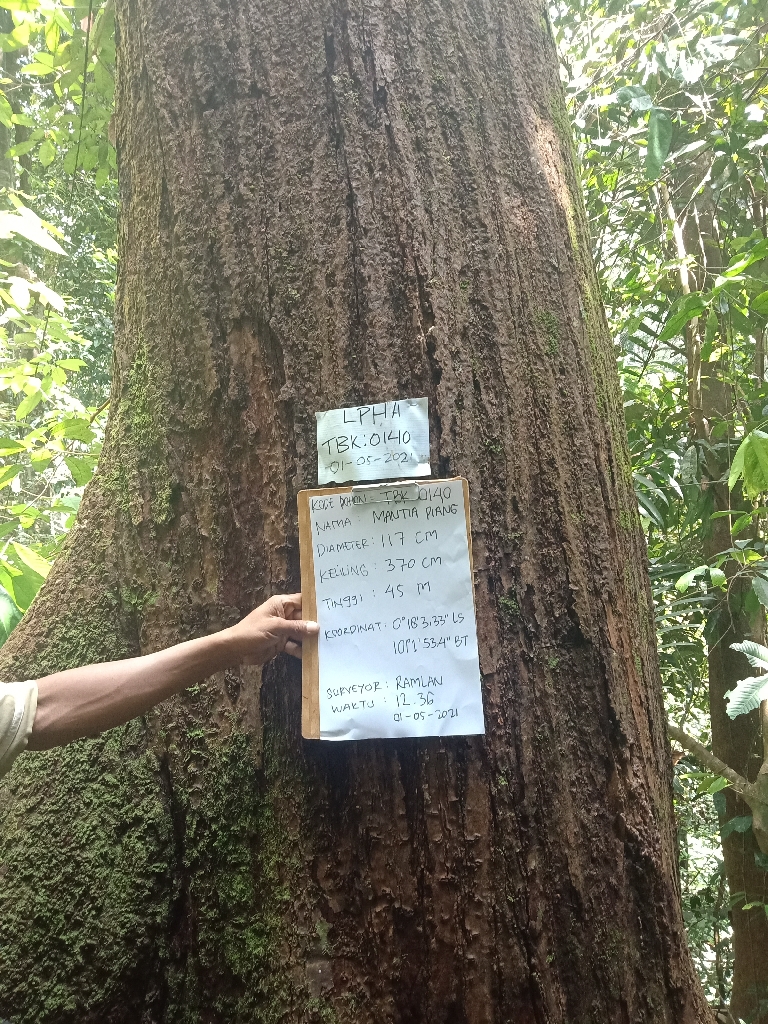 LPHA-
TBK:0140
01-05-2021
KODE POHON : TBK 0140
NAMA : MANTIA PIANG
DIAMETER : 117 CM
KELILING : 370 CM
TINGGI : 45 M
KOORDINAT : 0°18'3,33" LS
101°1'53.4" BT
SURVEYOR : RAMLAN
WAKTU : 12.36
01-05-2021